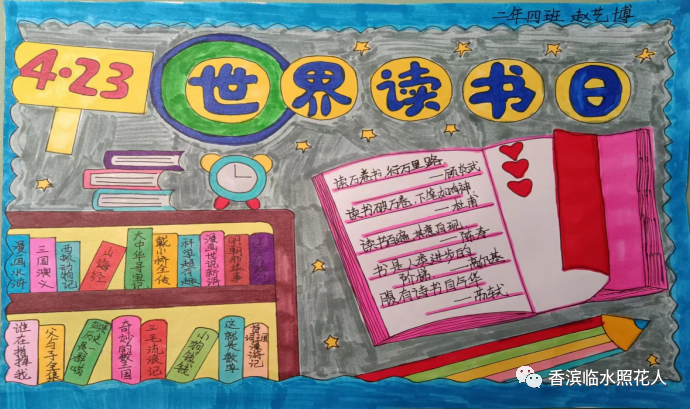 二年四班 赵艺博
4·23
世界读书日
读万卷书 行万里路
——顾炎武
读书破万卷,下笔如有神
——杜甫
读书百遍 其意自现
——陈寿
书是人类进步的
阶梯——高尔基
腹有诗书气自华
——苏轼
漫画水浒
三国演义
西顿动物记
山海经
大中华寻宝记
戴小桥全传
科学超有趣
漫画世说新语
谁在拽我
父与子全集
奇妙的数王国
三毛流浪记
小狗钱钱
这就是数学
香滨临水照花人